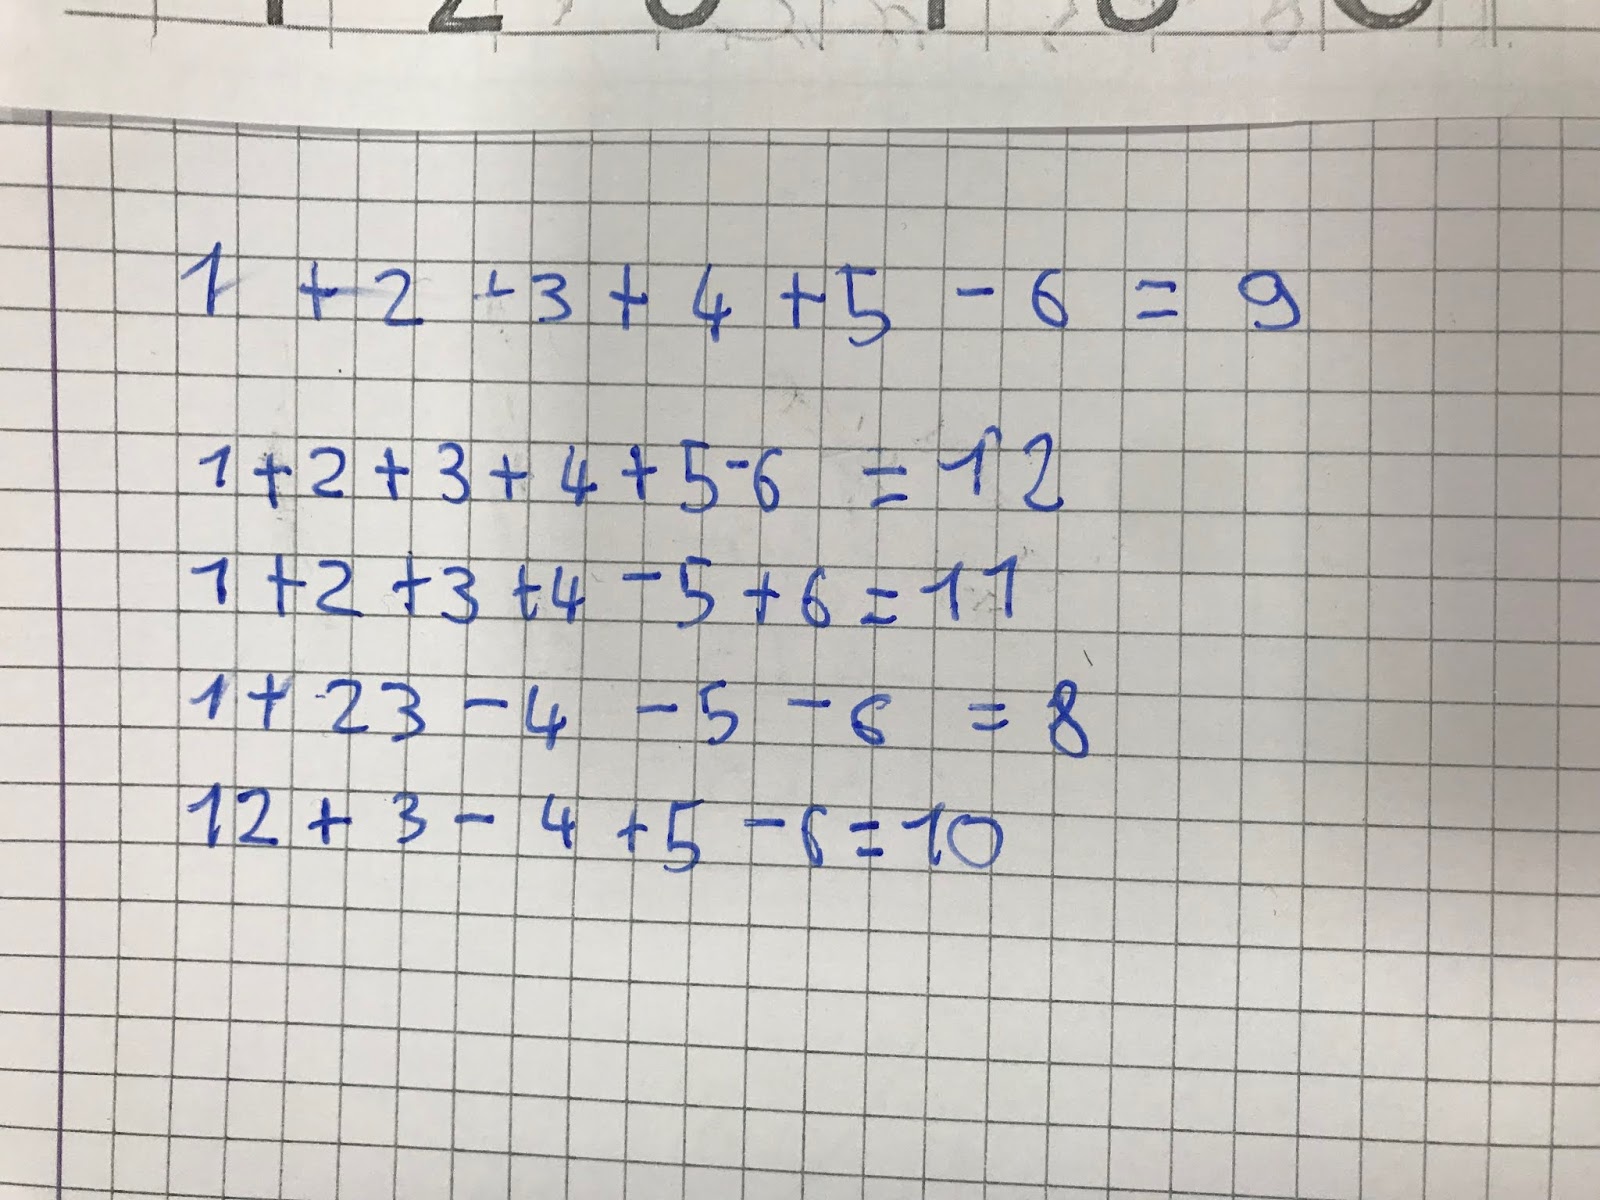 1 + 2 + 3 + 4 + 5 - 6 = 9
1 + 2 + 3 + 4 + 5 - 6 = 12
1 + 2 + 3 + 4 - 5 + 6 = 11
1 + 23 - 4 - 5 - 6 = 8
12 + 3 - 4 + 5 - 6 = 10